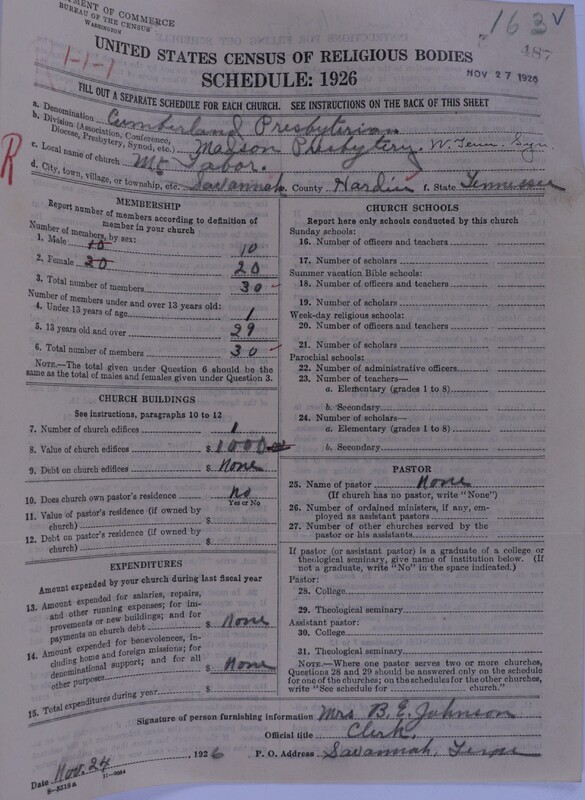 MENT OF COMMERCE
BUREAU OF THE CENSUS
WASHINGTON
163 ✓
487
1-1-7
NOV 27 1926
UNITED STATES CENSUS OF RELIGIOUS BODIES
SCHEDULE: 1926
FILL OUT A SEPARATE SCHEDULE FOR EACH CHURCH. SEE INSTRUCTIONS ON THE BACK OF THIS SHEET
R
a. Denomination Cumberland Presbyterian
b. Division (Association, Conference, Diocese, Presbytery, Synod, etc.) Madson Presbytery. W. Tenn. Syn.
c. Local name of church Mt Tabor.
d. City, town, village, or township, etc. Savannah e. County Hardin f. State Tennessee
MEMBERSHIP
Report number of members according to definition of
member in your church
Number of members, by sex:
1. Male 10 10
2. Female 20 20
3. Total number of members 30
Number of members under and over 13 years old:
4. Under 13 years of age 1
5. 13 years old and over 29
6. Total number of members 30
NOTE.—The total given under Question 6 should be
same as the total of males and females given under Question 3.
CHURCH BUILDINGS
See instructions, paragraphs 10 to 12
7. Number of church edifices 1
8. Value of church edifices $ 1000
9. Debt on church edifices $ None
10. Does church own pastor's residence No
Yes or No
11. Value of pastor's residence (if owned by
church) $
12. Debt on pastor's residence (if owned by
church) $
EXPENDITURES
Amount expended by your church during last fiscal year
13. Amount expended for salaries, repairs,
and other running expenses; for im-
provements or new buildings; and for
payments on church debt $ None
14. Amount expended for benevolences, in-
cluding home and foreign missions; for
denominational support; and for all
other purposes $ None
15. Total expenditures during year $
CHURCH SCHOOLS
Report here only schools conducted by this church
Sunday schools:
16. Number of officers and teachers
17. Number of scholars
Summer vacation Bible schools:
18. Number of officers and teachers
19. Number of scholars
Week-day religious schools:
20. Number of officers and teachers
21. Number of scholars
Parochial schools:
22. Number of administrative officers
23. Number of teachers—
a. Elementary (grades 1 to 8)
b. Secondary
24. Number of scholars—
a. Elementary (grades 1 to 8)
b. Secondary
PASTOR
25. Name of pastor None
(If church has no pastor, write "None")
26. Number of ordained ministers, if any, em-
ployed as assistant pastors
27. Number of other churches served by the
pastor or his assistants
If pastor (or assistant pastor) is a graduate of a college or
theological seminary, give name of institution below. (If
not a graduate, write "No" in the space indicated.)
Pastor:
28. College
29. Theological seminary
Assistant pastor:
30. College
31. Theological seminary
NOTE.—Where one pastor serves two or more churches,
Questions 28 and 29 should be answered only on the schedule
for one of the churches; on the schedules for the other churches,
write "See schedule for church."
Signature of person furnishing information Mrs B. E. Johnson
Official title Clerk,
Date Nov. 24, 1926 P. O. Address Savannah, Tenn